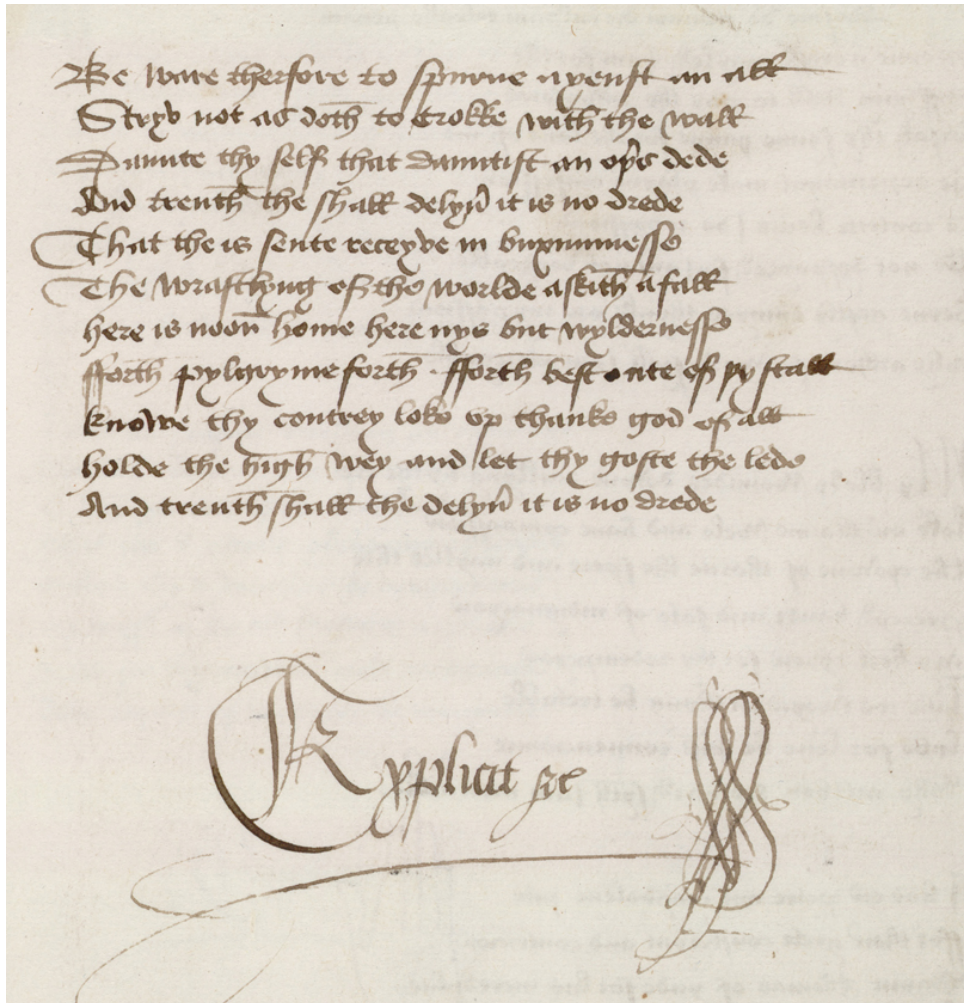 Be ware therfore to spurne ayenst an all
Stryv not as doth to crokke with the wall
Daunte thy self that dauntist an oþ's dede
And treuth the shall delyu' it is no drede
That the is sente receyve in buxumnesse
The wrastlyng of the worlde askith a fall
here is noon home here nys but wyldernesse
fforth pylgryme forth . fforth best oute of þy stall
knowe thy contrey loke vp thanke god of all
holde the high wey and let thy goste the lede
And treuth shall the delyu' it is no drede
Explicit &c